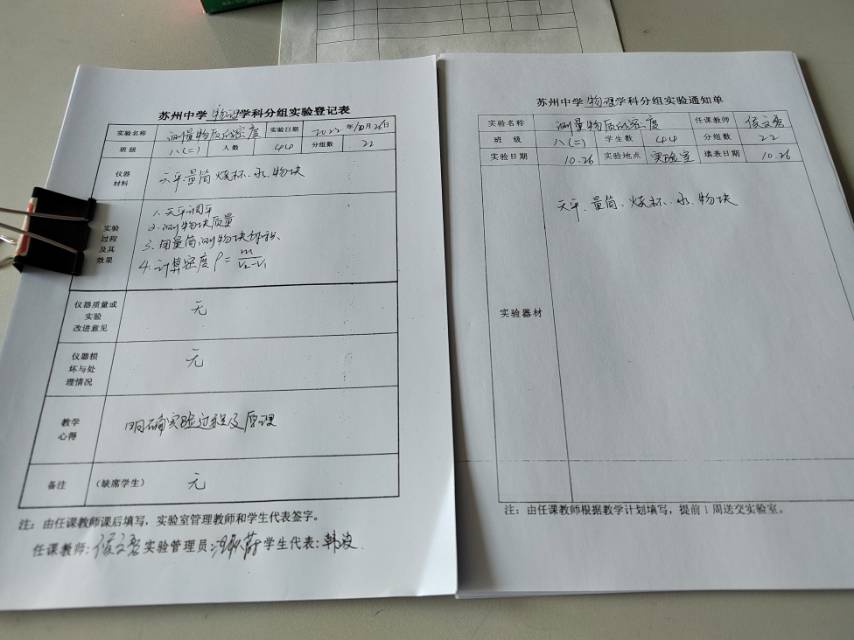 苏州中学物理学科分组实验登记表
实验名称 测量物质的密度 实验日期 2022年10月26日
班 级 八(二) 人数 44 分组数 22
仪器
材料
天平、量筒、烧杯、水、物块
实验
过程
及其
效果
1. 天平调平
2. 测物块质量
3. 用量筒测物块体积
4. 计算密度ρ=m/(V2-V1)
仪器质量或
实验
改进意见
无
仪器损
坏与处
理情况
无
教学
心得
明确实验过程及原理
备注 (缺席学生) 无
注: 由任课教师课后填写,实验室管理教师和学生代表签字。
任课教师: 实验管理员: 学生代表:
苏州中学物理学科分组实验通知单
实验名称 测量物质的密度 任课教师
班 级 八(二) 学生数 44 分组数 22
实验日期 10.26 实验地点 实验室 填表日期 10.26
实验器材
天平、量筒、烧杯、水、物块
注: 由任课教师根据教学计划填写,提前1周送交实验室。